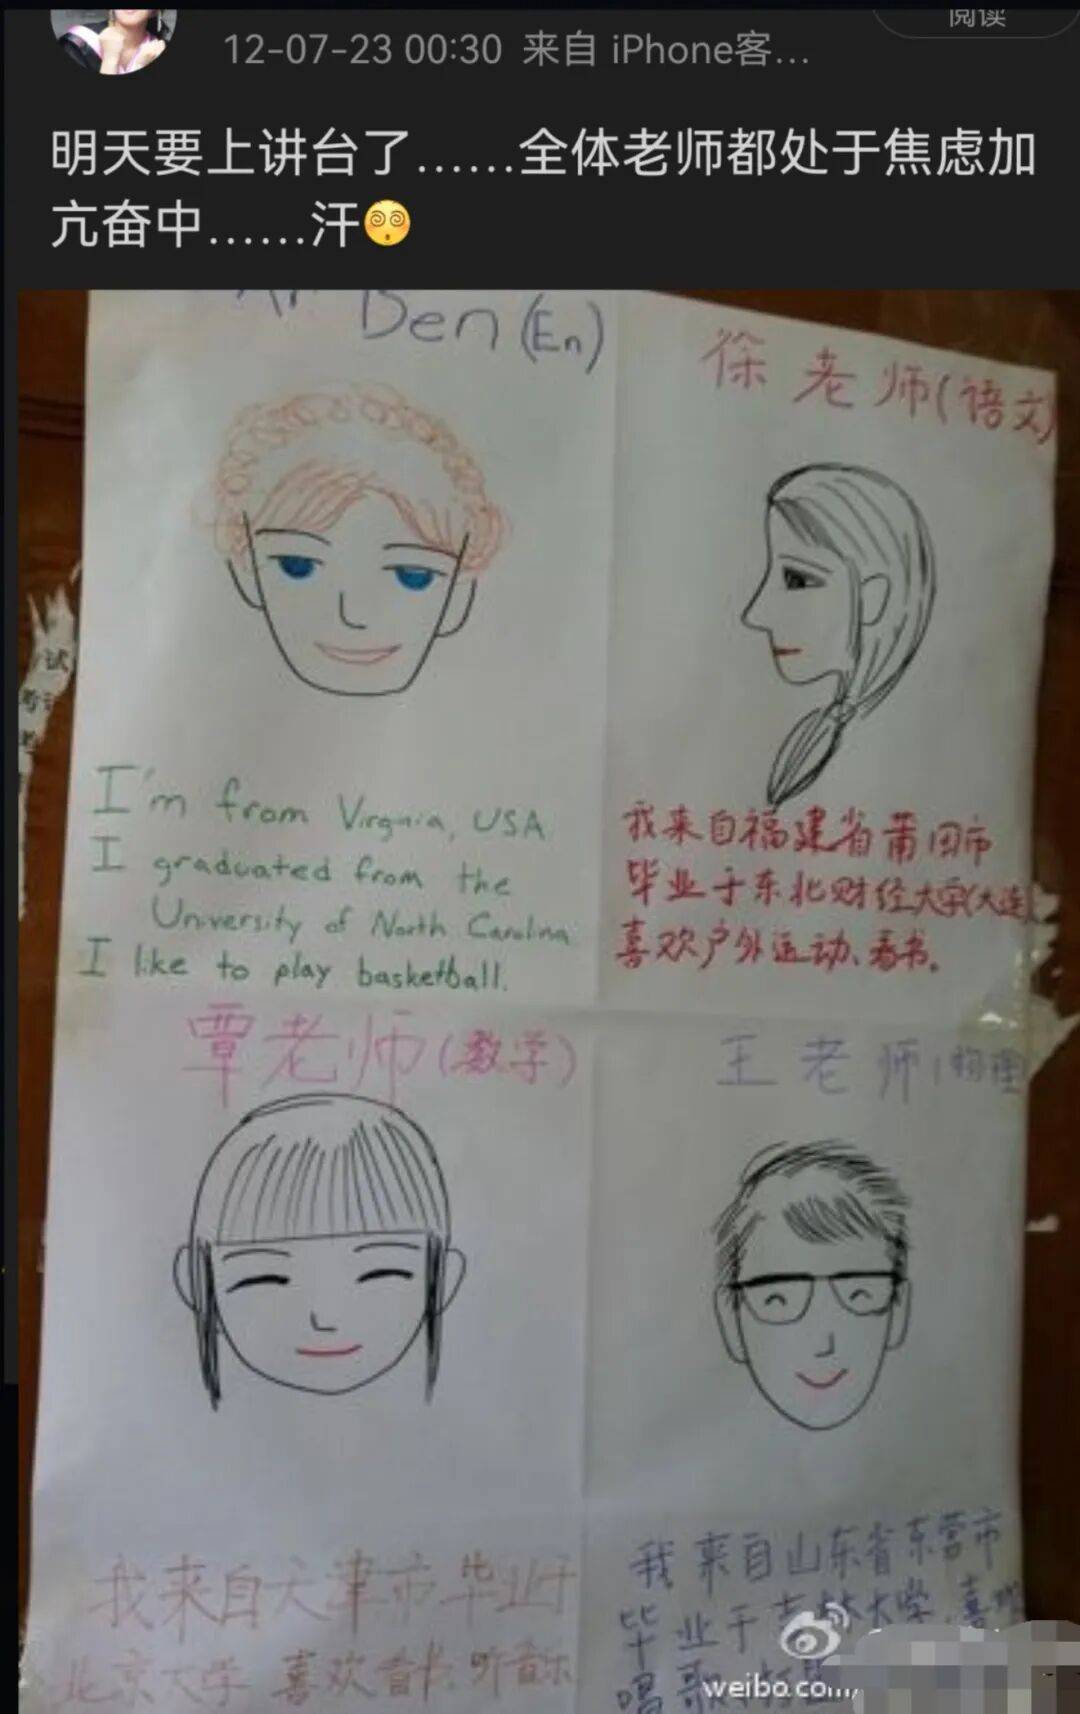 阅读
12-07-23 00:30 来自 iPhone客...
明天要上讲台了......全体老师都处于焦虑加
亢奋中......汗
Ben (En)
徐老师(语文)
I'm from Virginia, USA
I graduated from the
University of North Carolina
I like to play basketball.
我来自福建省莆田市
毕业于东北财经大学(大连)
喜欢户外运动、看书。
覃老师(数学)
王老师(物理
我来自天津市毕业于
北京大学 喜欢看书、听音乐
我来自山东省东营市
毕业于吉林大学,喜欢
唱歌
weibo.com/